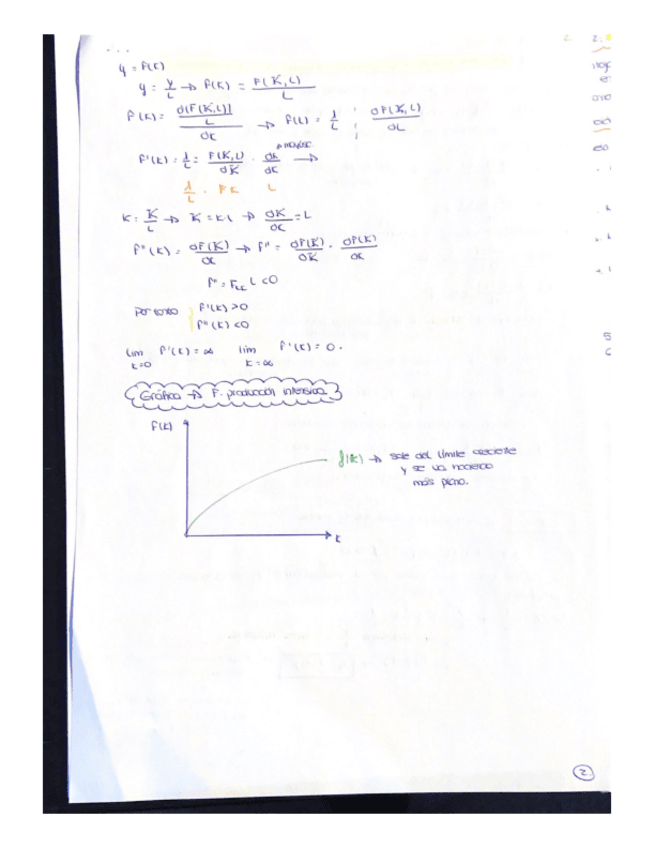 ...
y = f(k)
y = Y/L → f(k) = F(K,L)/L
f'(k) = d[F(K,L)]/L / dk → f(k) = 1/L · dF(K,L)/dL
f'(k) = 1/L = F(K,L)/dK · dk/dk →
1/L · FK L
k = K/L → K = kL → dK/dk = L
f''(k) = dF(K)/dk → f'' = dF(K)/dK · dF(K)/dk
f'' = F_KK L < 0
Por tanto { f'(k) > 0
f''(k) < 0
lim f'(k) = ∞ lim f'(k) = 0.
k=0 k=∞
Gráfica → F. producción intensiva
f(k)
f(k) → sale del límite creciente
y se va haciendo
más plano.
k
2.